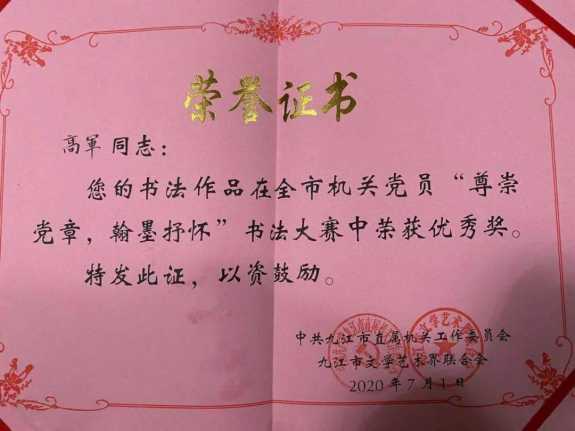 荣誉证书
高軍 同志：
您的书法作品在全市机关党员“尊崇
党章，翰墨抒怀”书法大赛中荣获优秀奖。
特发此证，以资鼓励。
中共九江市直属机关工作委员会
九江市文学艺术界联合会
2020年7月1日